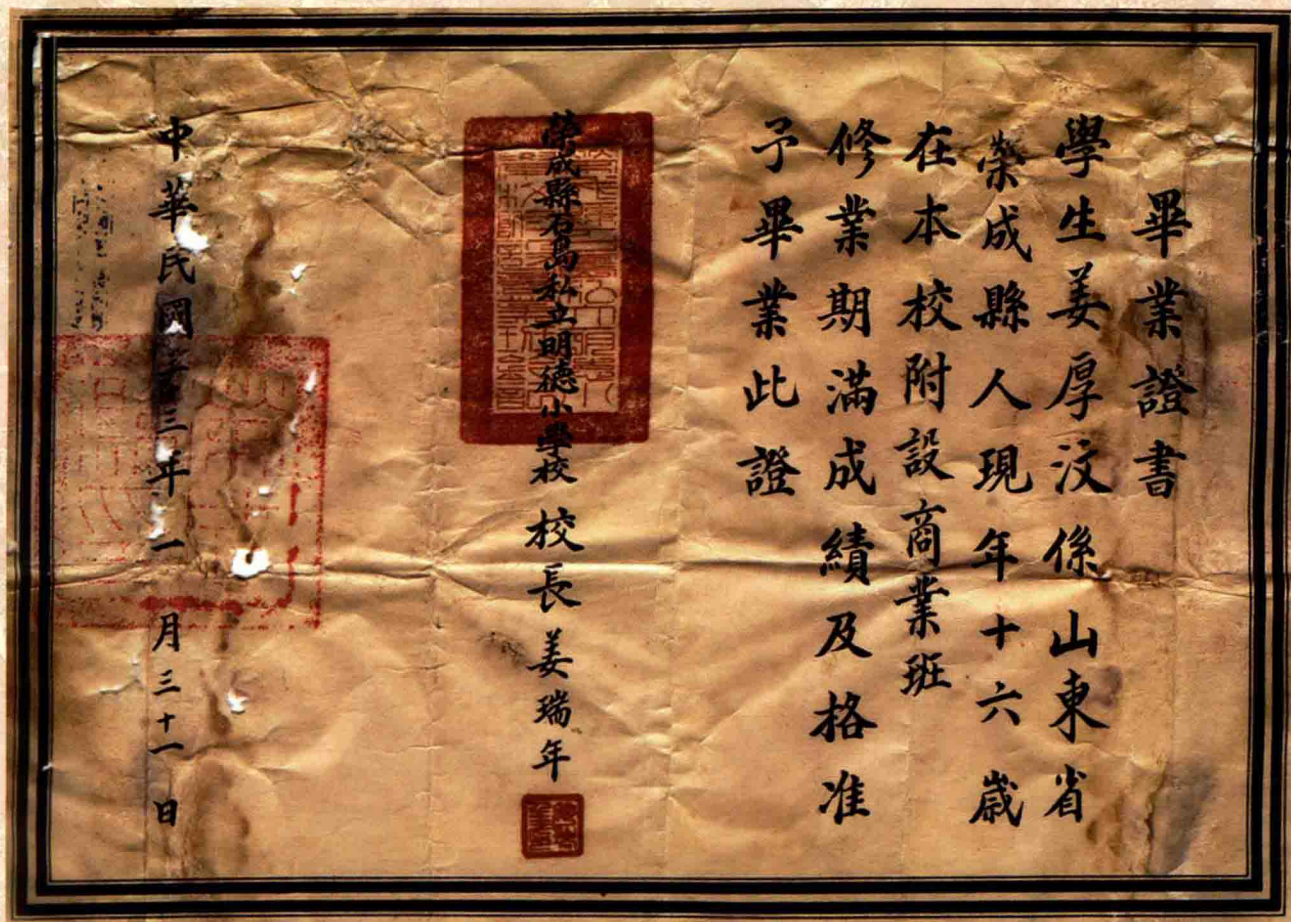 畢業證書
學生姜厚汶係山東省
榮成縣人現年十六歲
在本校附設商業班
修業期滿成績及格准
予畢業此證
榮成縣石島私立明德小學校 校長姜瑞年
中華民國 三年一月三十一日